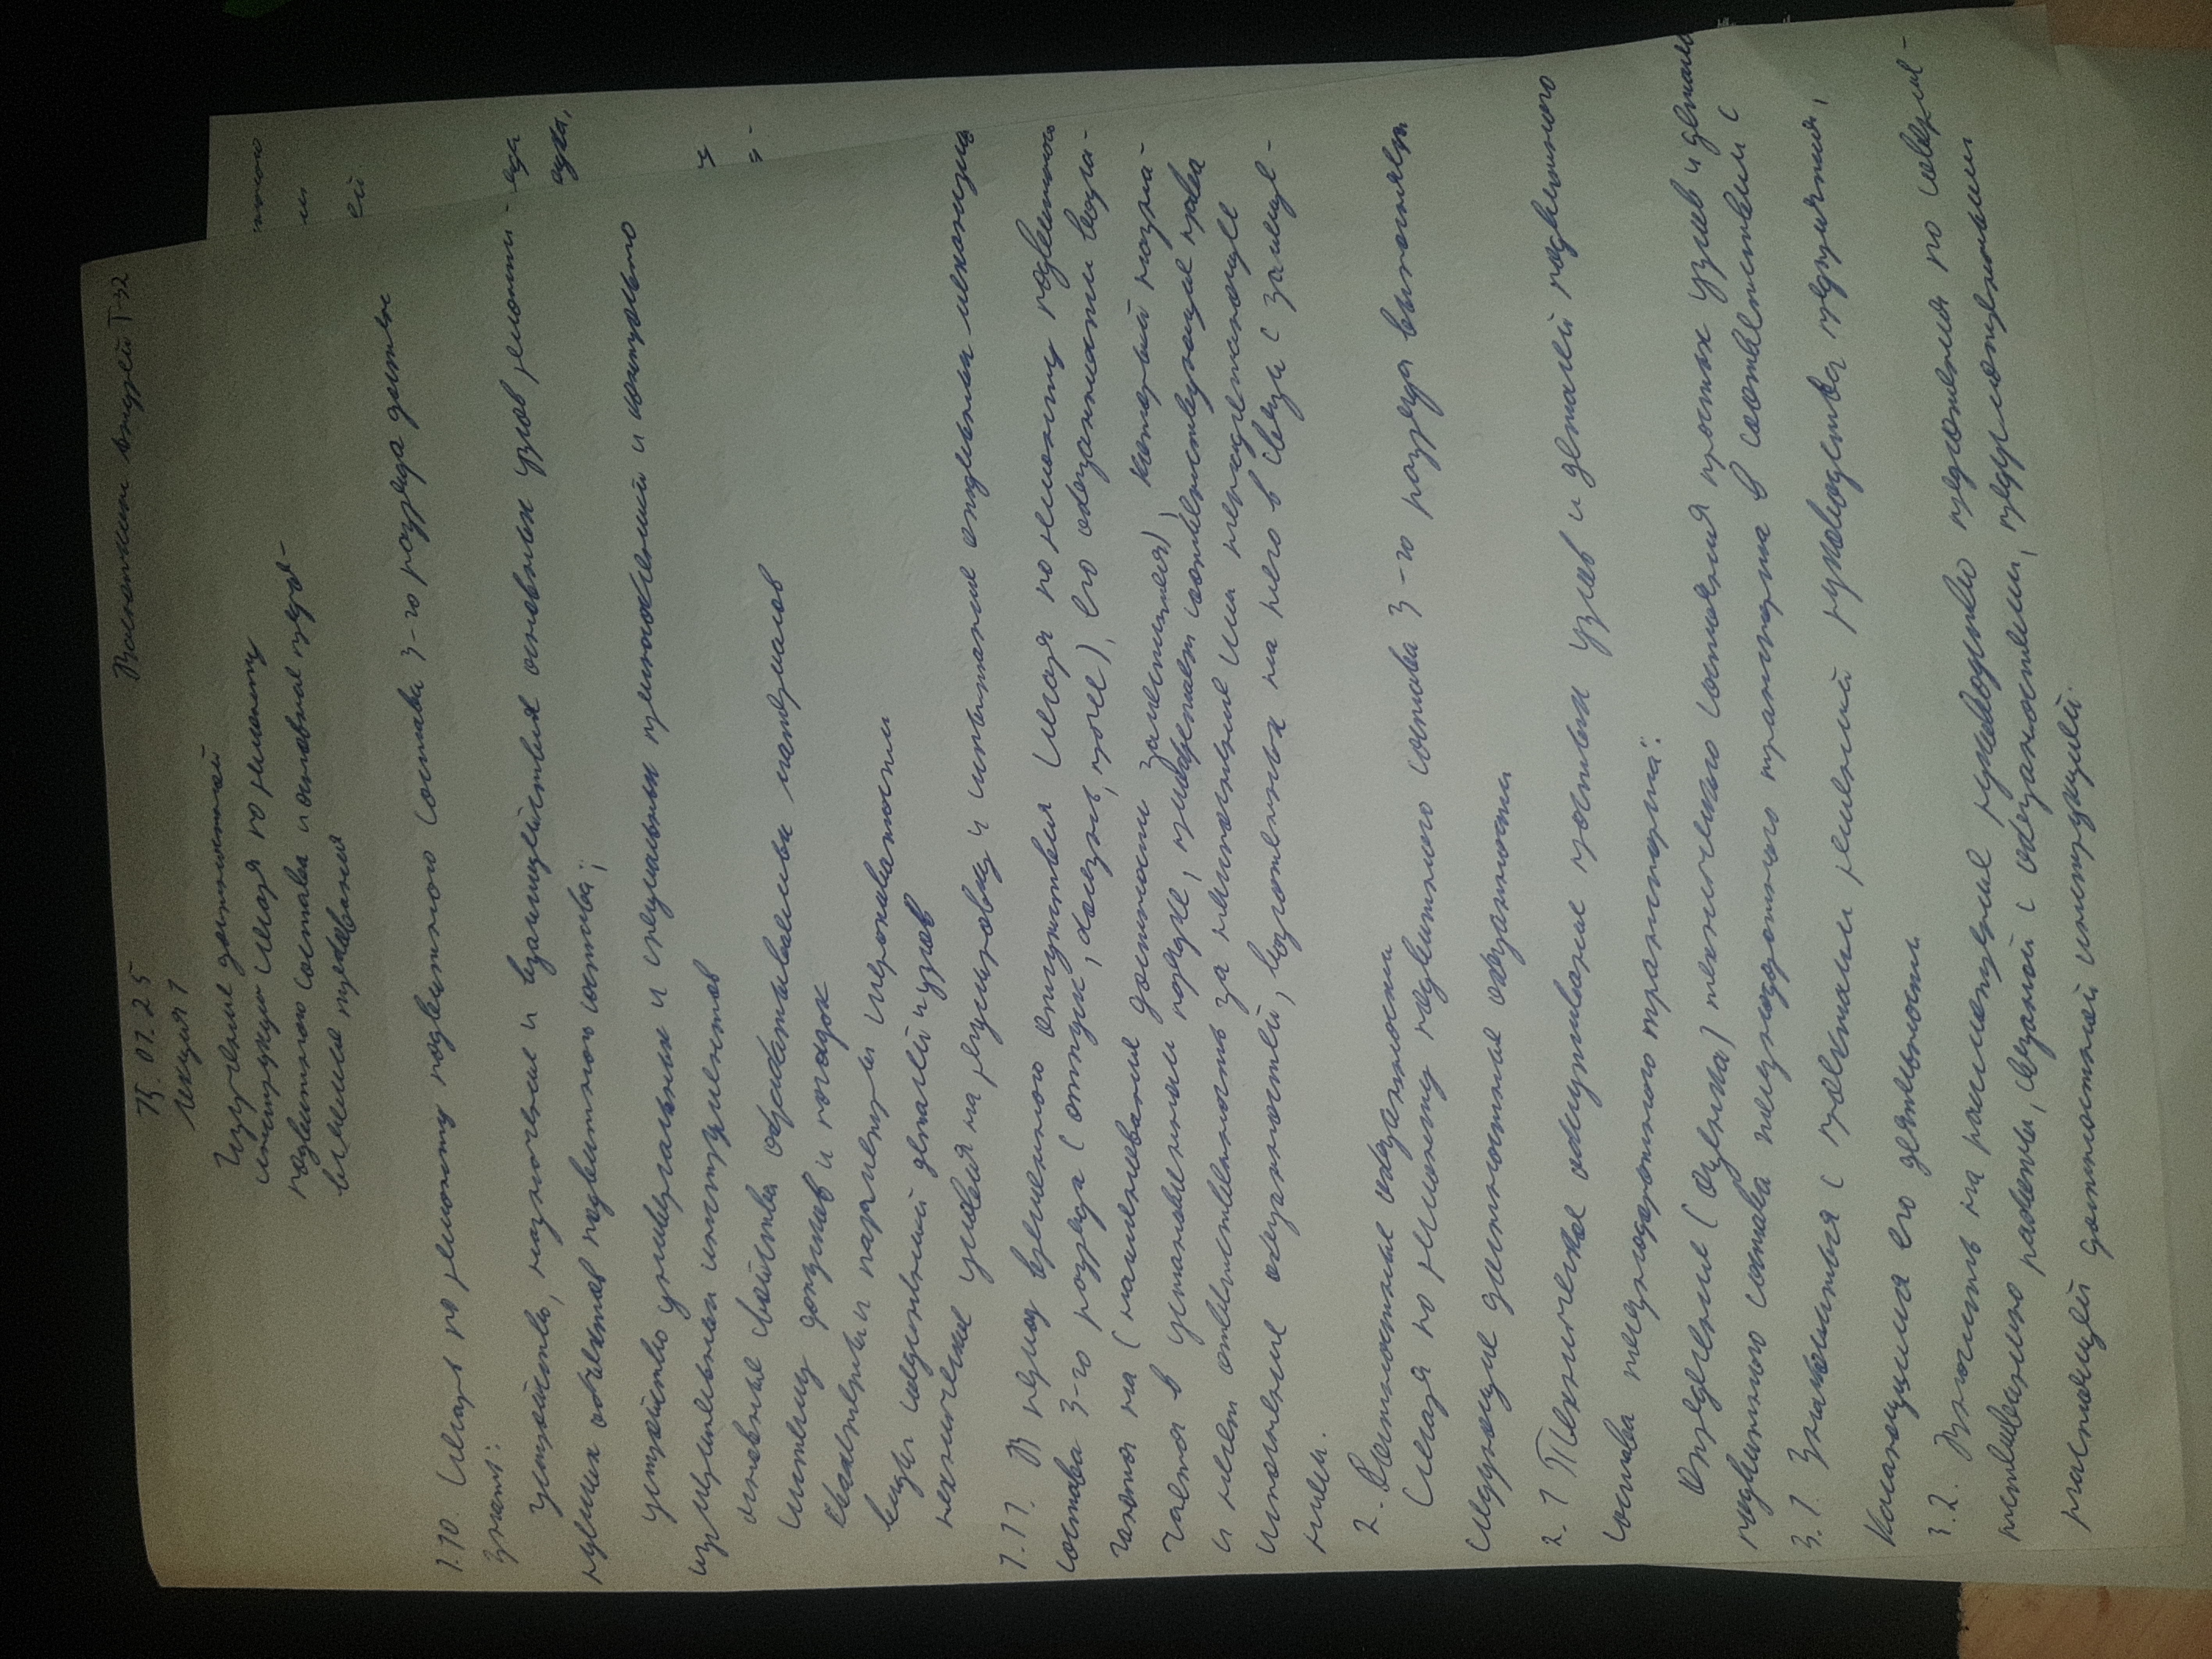 15.01.25
Лекция 1
Изучение должностной
инструкции слесаря по ремонту
подвижного состава и основные предъ-
явление требования
1.10. Слесарь по ремонту подвижного состава 3-го разряда должен
знать:
устройство, назначение и взаимодействия основных узлов ремонти-
руемых объектов подвижного состава;
устройство универсальных и специальных приспособлений и контрольно
измерительных инструментов
основные свойства обрабатываемых материалов
систему допусков и посадок
квалитеты и параметры шероховатости
виды соединений деталей и узлов
технические условия на регулировку и испытание отдельных механизмов
1.11. В период временного отсутствия слесаря по ремонту подвижного
состава 3-го разряда (отпуск, болезнь, прочее), его обязанности возла-
гаются на (наименование должности заместителя), который назна-
чается в установленном порядке, приобретает соответствующие права
и несет ответственность за неисполнение или ненадлежащее
исполнение обязанностей, возложенных на него в связи с замеще-
нием.
2. Должностные обязанности
Слесаря по ремонту подвижного состава 3-го разряда выполняет
следующие должностные обязанности
2.1 Техническое обслуживание простых узлов и деталей подвижного
состава железнодорожного транспорта:
Определение (оценка) технического состояния простых узлов и деталей
подвижного состава железнодорожного транспорта в соответствии с
3.1. Знакомиться с проектами решений руководства предприятия,
касающимися его деятельности
3.2. Вносить на рассмотрение руководство предложения по соверш-
енствованию работы, связанной с обязанностями, предусмотренными
настоящей должностной инструкцией.